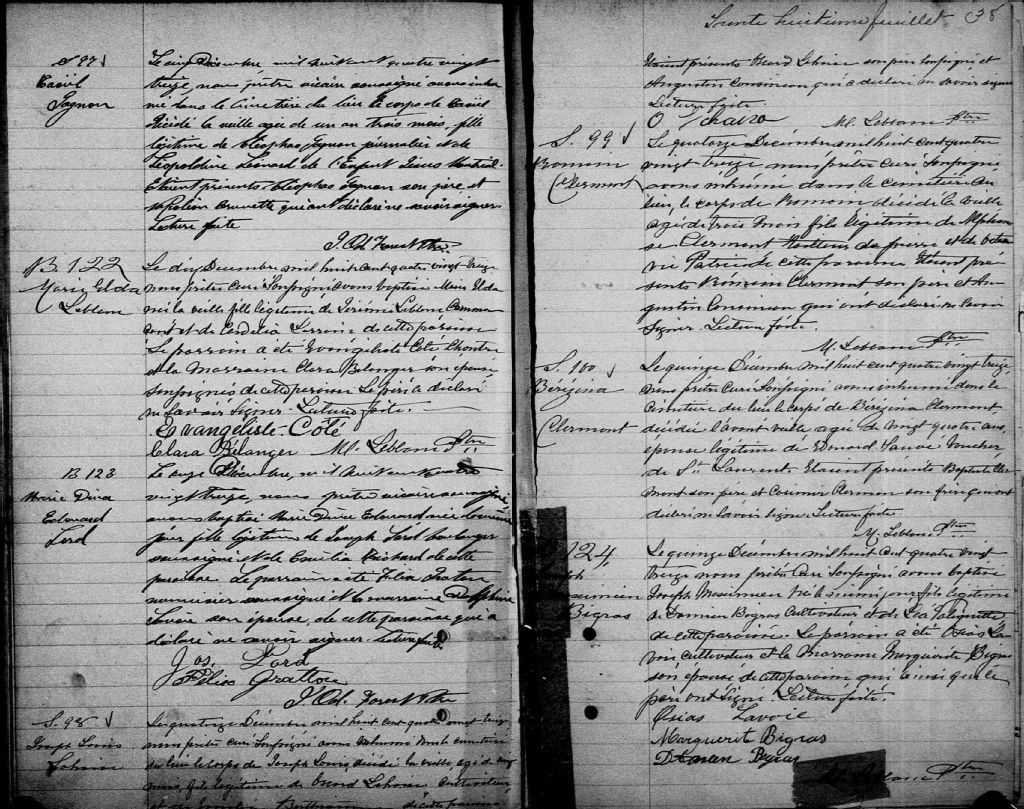 S 97
Le cinq Décembre mil huit cent quatre vingt
treize, nous prêtre vicaire soussigné avons inhu
mé dans le cimetière du lieu le corps de
décédé la veille agée de un an trois mois, fille
légitime de Cléophas Gagnon journalier et de
Léopoldine Lénard de l'Enfant Jésus Montréal
Etaient présents Cléophas Gagnon son père et
Napoléon Brunette qui ont déclaré ne savoir signer
Lecture faite
B. 122
Marie Elda
Leblanc
Le dix Decembre mil huit cent quatre vingt treize
nous prêtre Curé Soussigné avons baptisé Marie Elda
née la veille fille légitime de Jérémie Leblanc Commer
cant et de Cordelia de cette paroisse
Le parrain a été Evangéliste Coté Chantre
et la Marraine Clara Belanger son épouse
soussignés de cette paroisse Le père a déclaré
ne savoir signer. Lecture faite.
Evangéliste Côté
Clara Bélanger M. Leblanc Ptre
B 123
Marie Diva
Edouard
Lord
Le onze Décembre, mil huit cent
vingt treize, nous prêtre vicaire soussigné
avons baptisé Marie Diva Edouard née
jour fille légitime de Joseph Lord boulanger
soussigné et de Emélia Richard de cette
paroisse Le parrain a été Félix Gratton
menuisier soussigné et la marraine
son épouse, de cette paroisse qui a
déclaré ne savoir signer. Lecture faite.
Jos. Lord
Félix Gratton
S. 98
Joseph Louis
Lahaie
Le quatorze Décembre mil huit cent quatre vingt treize
nous prêtre curé Soussigné avons inhumé dans le cimetière
du lieu le corps de Joseph Louis, décédé la veille, agé de
mois, fils légitime de Lahaie Cultivateur
de cette paroisse
Trente huitième feuillet 38
Etaient présents Lahaie son père soussigné et
Augustin Cousineau qui a déclaré ne savoir signer
Lecture faite
M. Leblanc Ptre
S. 99
Clermont
Le quatorze Décembre mil huit cent quatre
vingt treize nous prêtre Curé Soussigné
avons inhumé dans le cimetière du
lieu, le corps de décédé la veille
agé de trois mois fils légitime de Alphon
se Clermont tailleur de pierre et de Octa
vie Patrie de cette paroisse Etaient pré
sents Clermont son père et Au
gustin Cousineau qui ont déclaré ne savoir
Signer. Lecture faite.
M. Leblanc Ptre
S. 100
Bérézina
Clermont
Le quinze Décembre mil huit cent quatre vingt treize
nous prêtre Curé Soussigné avons inhumé dans le
Cimetière du lieu le corps de Bérézina Clermont
décédée l'avant veille agée de vingt quatre ans
épouse légitime de Edouard Sauvé boucher
de St Laurent. Etaient présents Baptiste Cler
mont son père et Casimir Clermon son frère qui ont
déclaré ne savoir signer. Lecture faite.
M. Leblanc Ptre
124
Bigras
Le quinze Décembre mil huit cent quatre vingt
treize nous prêtre Curé Soussigné avons baptisé
Joseph né le même jour, fils légitime
de Damien Bigras Cultivateur et de Léa
de cette paroisse. Le parrain a été Osias La
voie cultivateur et la Marraine Marguerite Bigras
son épouse de cette paroisse qui ainsi que le
père ont signé. Lecture faite.
Osias Lavoie
Marguerit Bigras
Damien Bigras
M. Leblanc Ptre